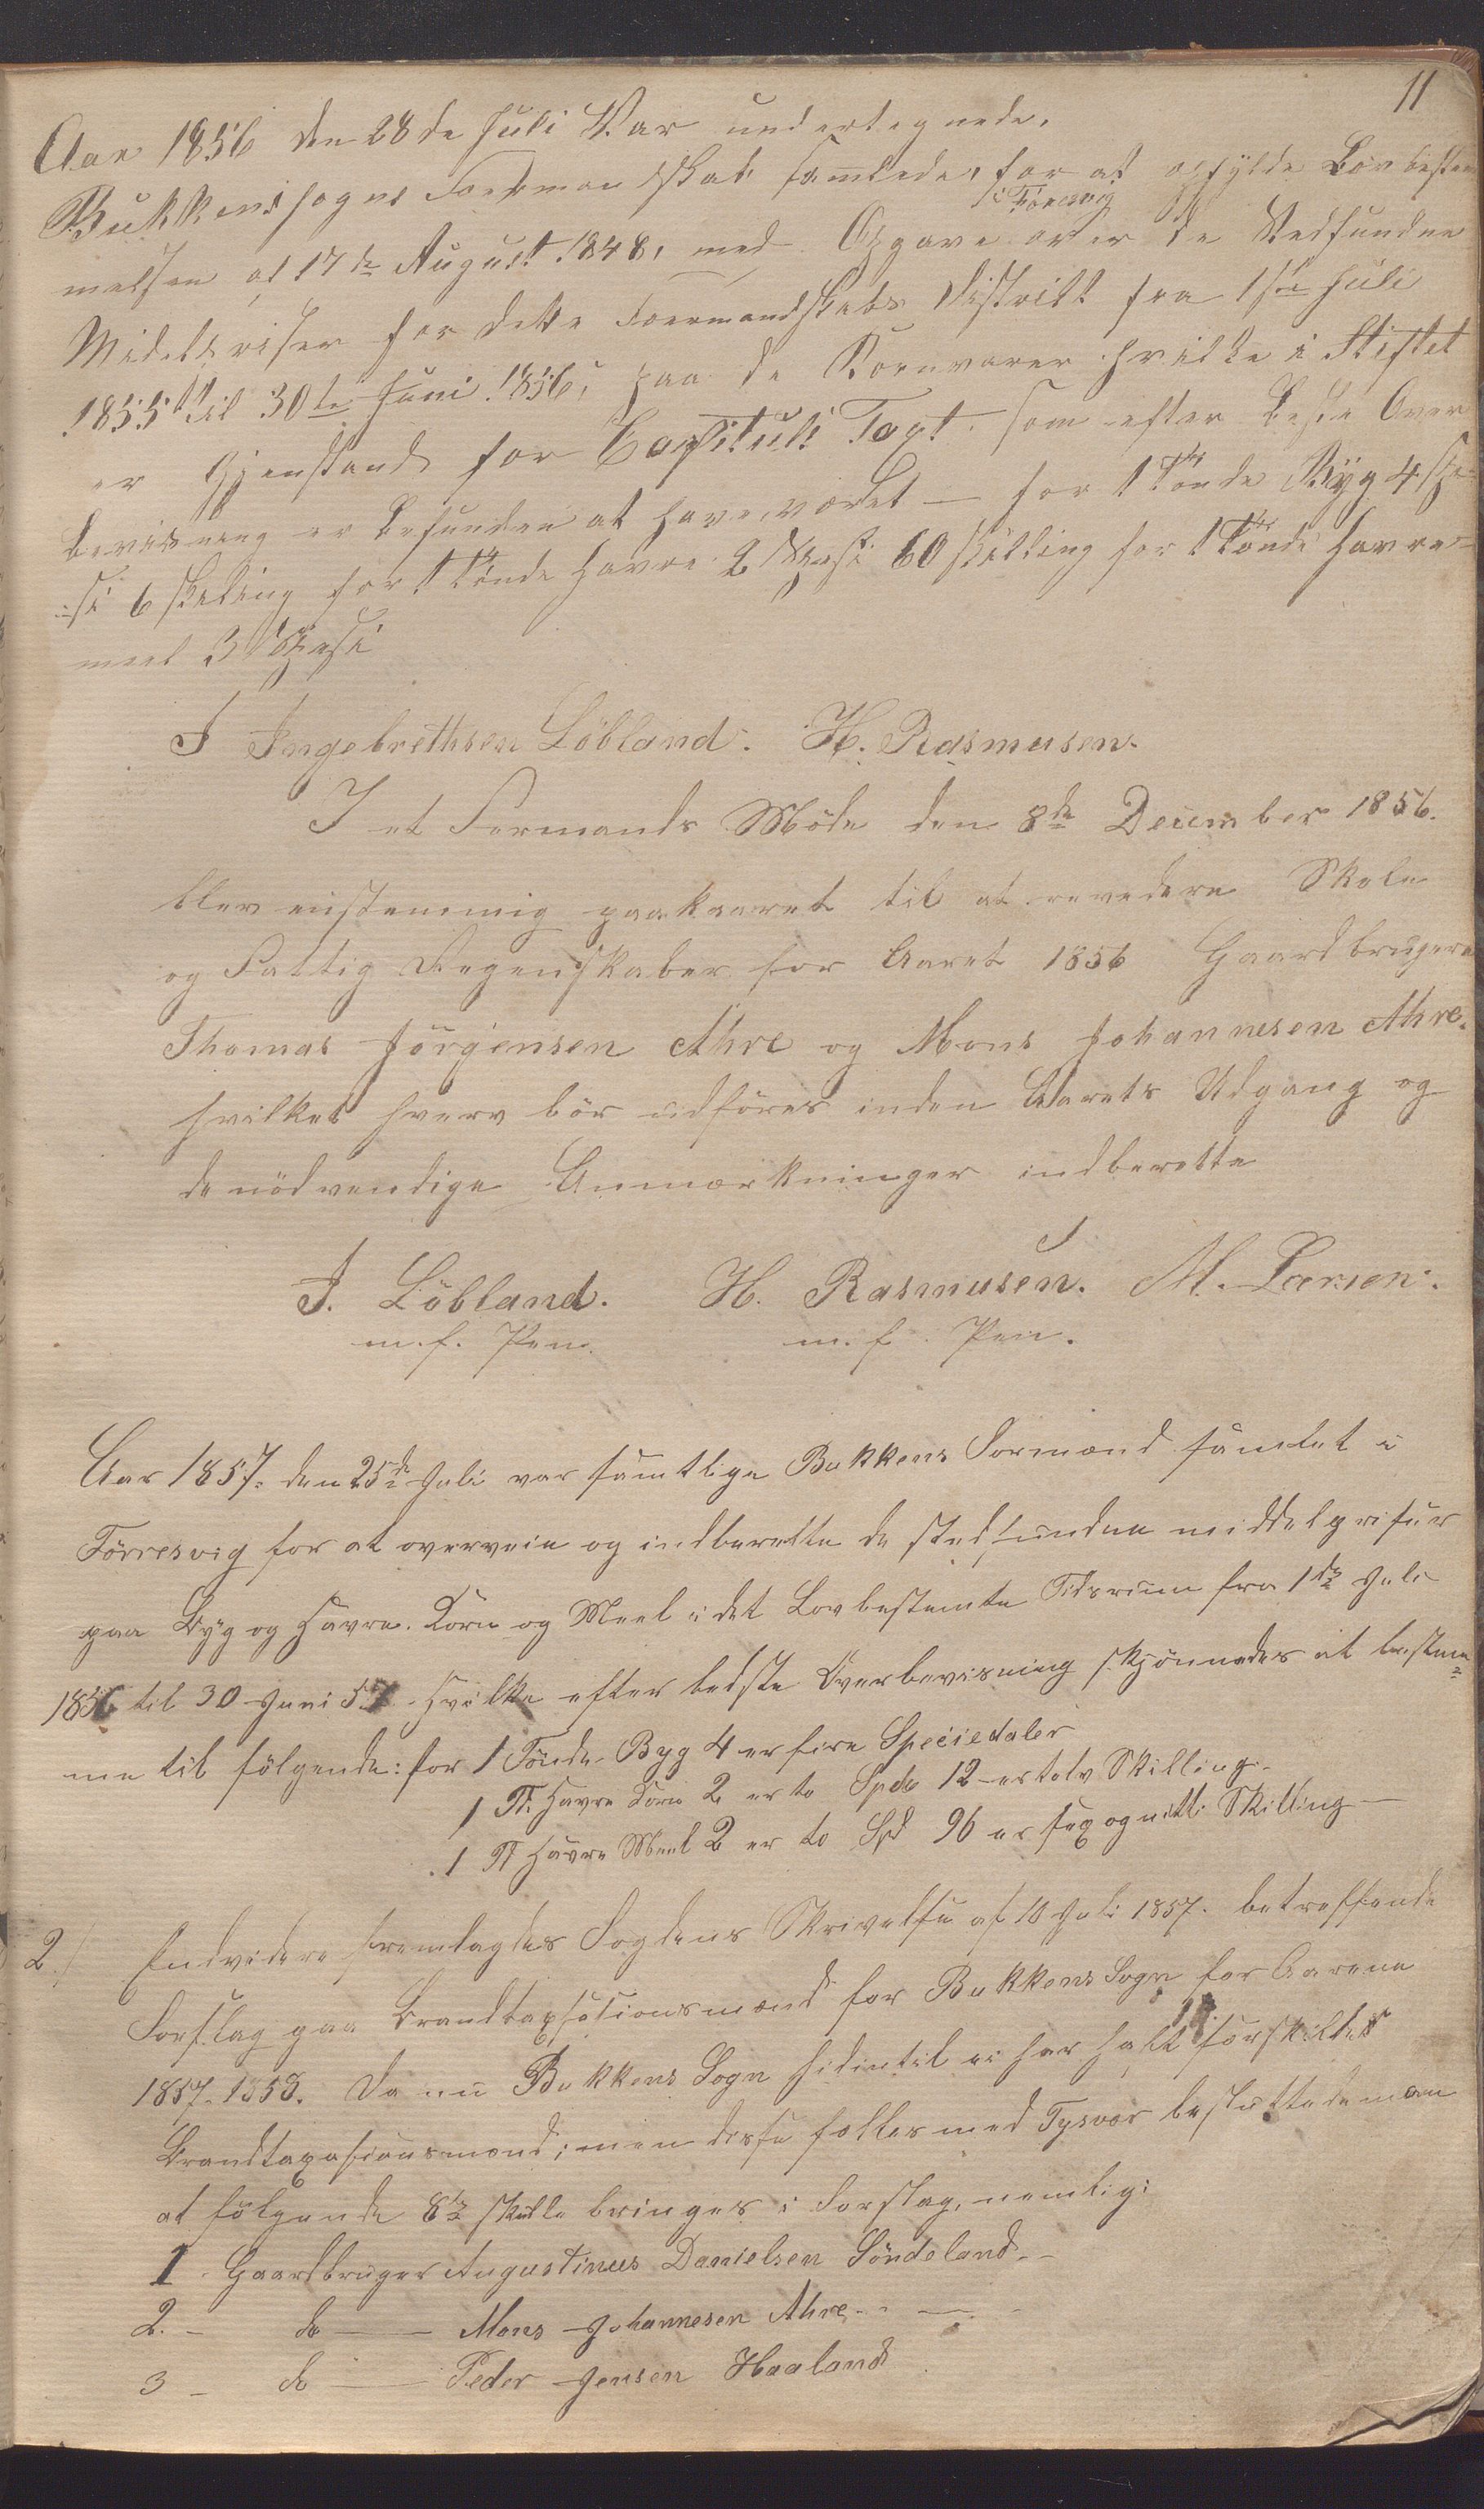 11
Aar 1856 den 28de Juli Var undertegnede.
Bukkens sogns Foermandskab samlede, for at opfylde Lov bestem
i Föresvig
melsen af 17de August 1848, med Opgave over de Stedfundne
Midelpriser for dette Foermandskabs Distrikt fra 1ste Juli
1855 til 30te Juni 1856, paa de Kornvarer hvilke i Stiftet
er Gjenstand for Capituls Taxt. som efter beste Over
bevisning er befunden at have været — for 1 Tönde Byg 4 Spe
si 6 skeling for 1 Tönde Havre 2 Spesi 60 skilling for 1 Tönde Havre
meel 3 Spesi
J Ingebrethsen Löbland. H. Rasmusen.
I et Formands Möde den 8de December 1856.
blev eenstemmig paakaaret til at revedere Skole
og Fattig Regenskaber for Aaret 1856 Gaardbrugere
Thomas Jörgensen Ahre og Mons Johannesen Ahre.
hvilket hverv bör udföres inden Aarets Udgang og
de nödvendige Anmærkninger indberette
J. Löbland. H. Rasmusen. M. Larsen.
m. f. Pen. m. f. Pen.
Aar 1857. den 25de Juli var samtlige Bukkens Formænd samlet i
Förresvig for at overveie og indberette de stedfundne middelpriser
paa Byg og Havre. Korn og Meel i det Lovbestemte Tidsrum fra 1de Juli
1856 til 30 Juni 57. Hvilke efter bedste Overbevisning skjönnedes at bestem=
me til fölgende: for 1 Tönde Byg 4 er fire Speciedaler
1 T. Havre Korn 2 er to Spd 12 er tolv Skilling.
1 T Havre Meel 2 er to Spd 96 er sex og nitti Skilling —
2./ Endvidere fremlagdes Fogdens Skrivelse af 10 Juli 1857. betreffende
Forslag paa Brandtaxsationsmænd for Bukkens Sogn for Aarene
1857-1858. Da nu Bukkens Sogn hidintil ei har haft særskildte
Brandtaxasionsmænd; men disse fælles med Tysvær besluttede man
at fölgende 8te skulle bringes i Forslag, nemlig:
1 Gaardbruger Augustinus Danielsen Söndeland —
2. - do — Mons Johannesen Ahre — —
3 - do — Peder Jensen Haaland